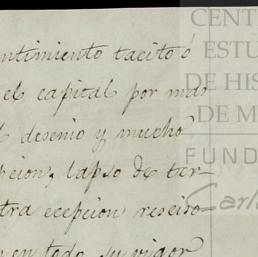 ntimiento tacito ó
el capital por mas
desenio y mucho
pcion, lapso de ter-
tra ecepcion resciso
en todo su vigor
CENT
ESTU
DE HIS
DE M
FUND
Carlo